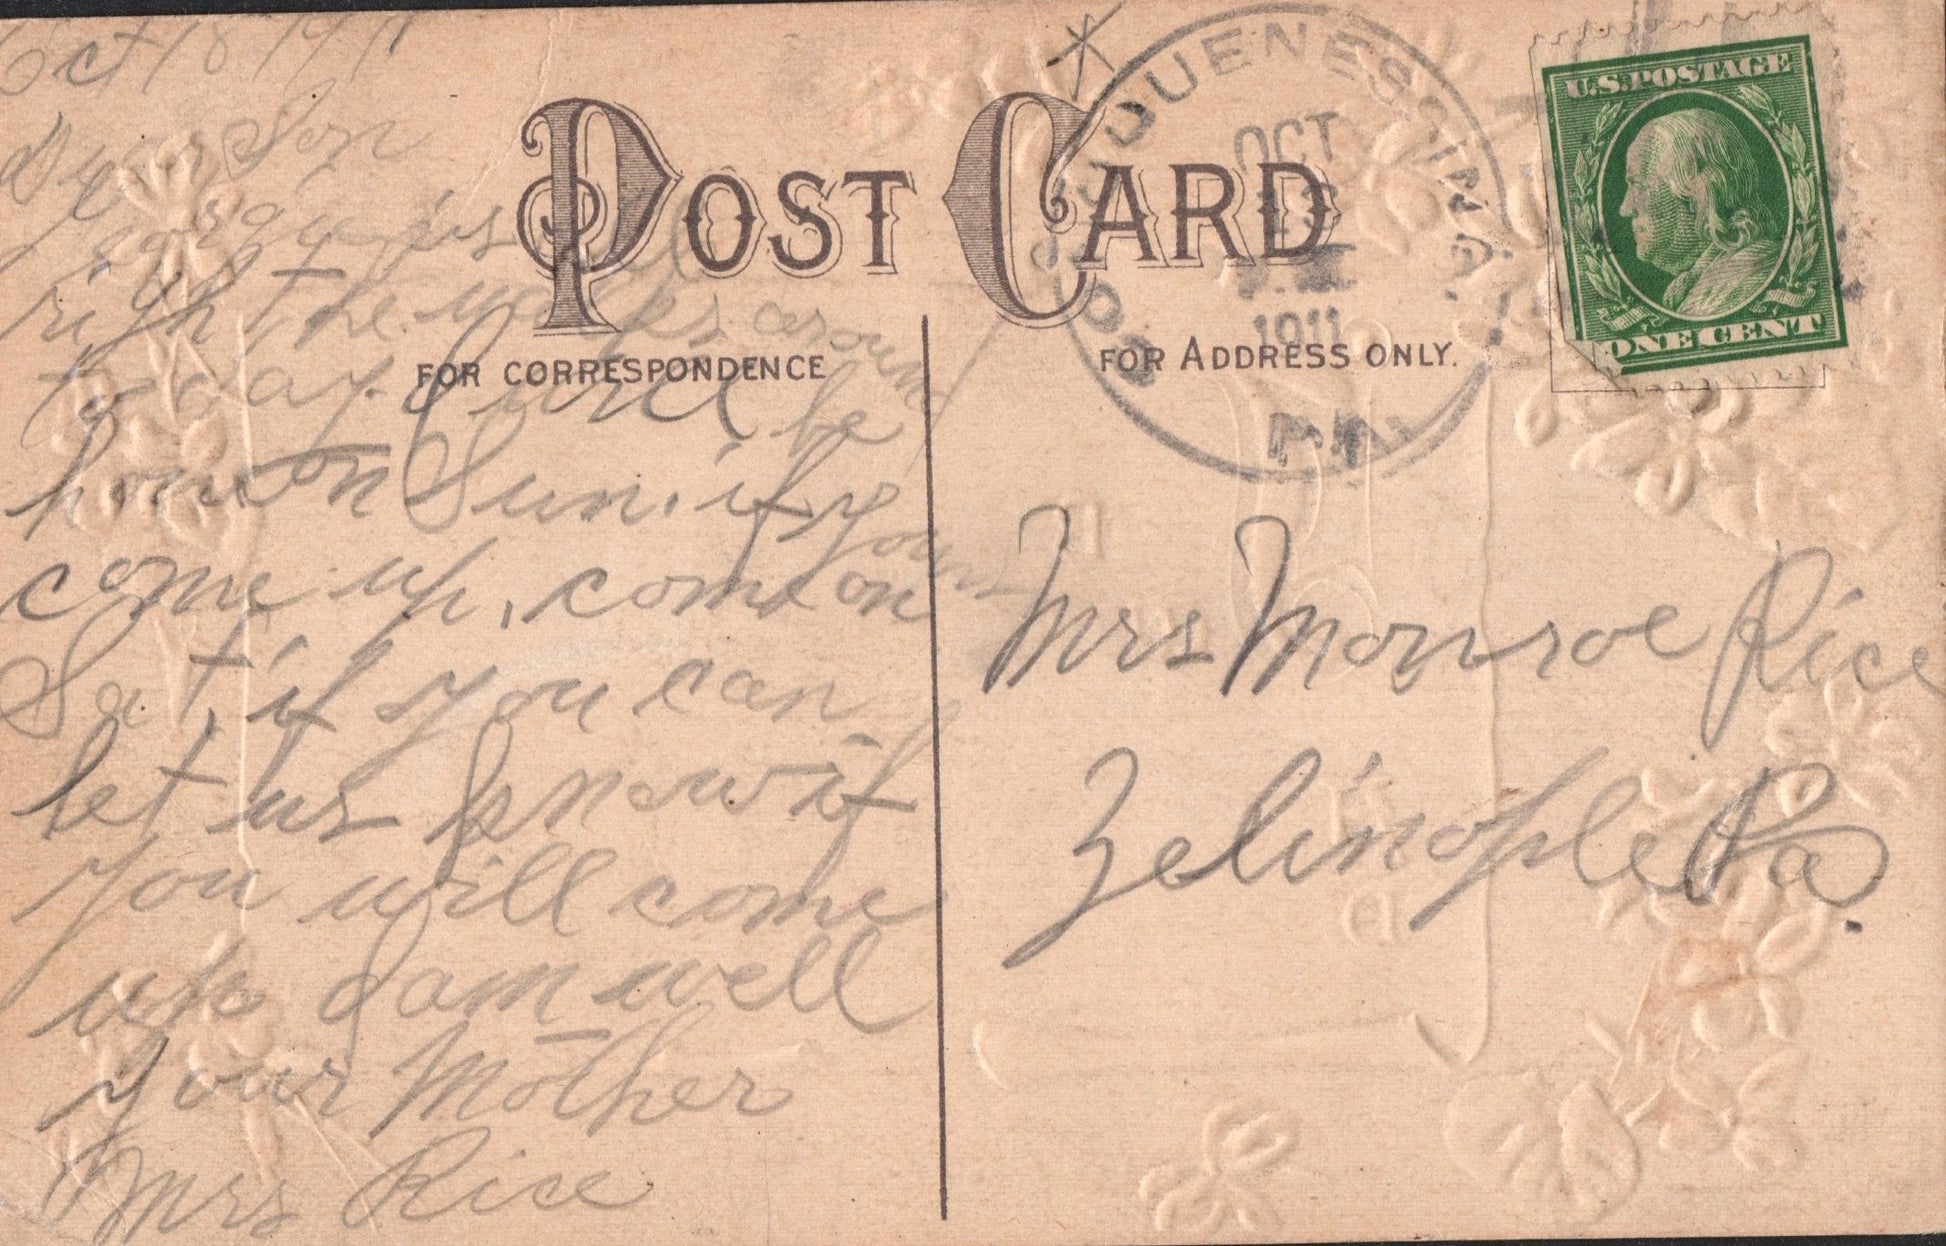 Oct 18 1911
Dear Son
papa is all
right he walks around
today. I will be
home on Sun. if you
come up, come on yours
Sat, if you can,
let us know if
you will come
up I am well
Your Mother
Mrs Rice
POST CARD
FOR CORRESPONDENCE
FOR ADDRESS ONLY.
OCT
18
1911
PA.
U.S. POSTAGE
ONE CENT
Mrs Monroe Rice
Zelinople Pa.